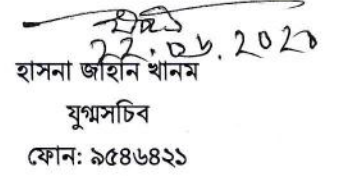 22.06.2020
হাসনা জাহান খানম
যুগ্মসচিব
ফোন: ৯৫৪৬৪২১